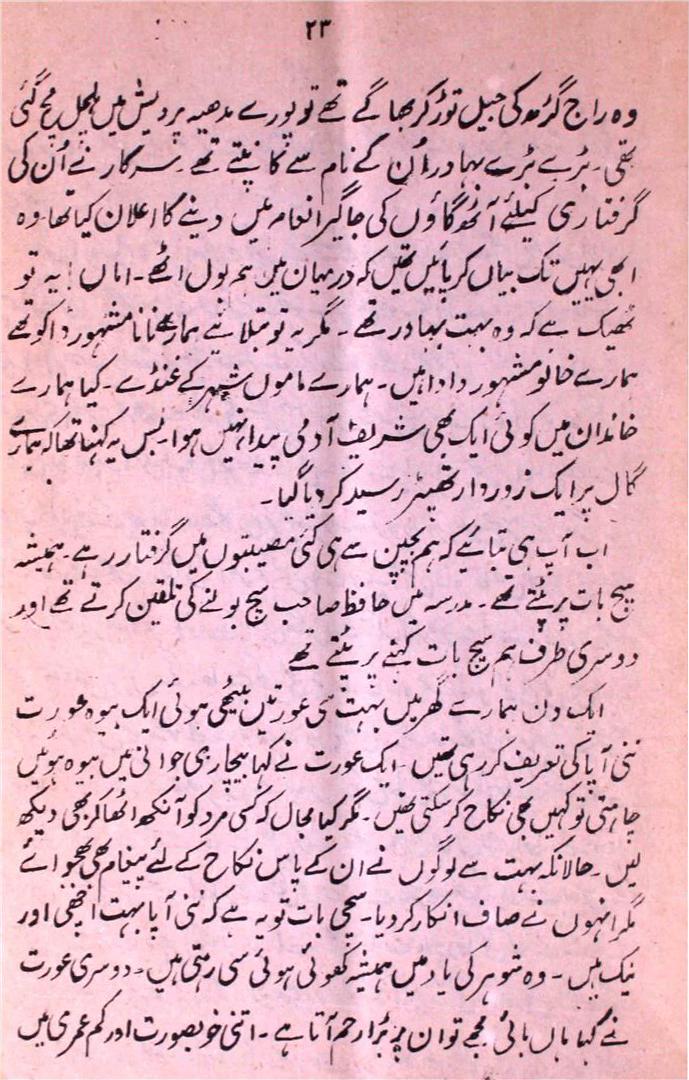 ۲۳
وہ راج گڑھ کی جیل توڑ کر بھاگے تھے تو پورے مدھیہ پردیش میں ہلچل مچ گئی
تھی۔ بڑے بڑے بہادر اُن کے نام سے کانپتے تھے۔ سرکار نے اُن کی
گرفتاری کیلئے آٹھ گاؤں کی جاگیر انعام میں دینے کا اعلان کیا تھا۔ وہ
ابھی یہیں تک بیاں کر پائیں تھیں کہ درمیان میں ہم بول اٹھے۔ اماں! یہ تو
ٹھیک ہے کہ وہ بہت بہادر تھے۔ مگر یہ تو بتلائیے ہمارے نانا مشہور ڈاکو تھے
ہمارے خالو مشہور دادا ہیں۔ ہمارے ماموں شہر کے غنڈے۔ کیا ہمارے
خاندان میں کوئی ایک بھی شریف آدمی پیدا نہیں ہوا۔ بس یہ کہنا تھا کہ ہمارے
گال پر ایک زور دار تھپڑ رسید کر دیا گیا۔
اب آپ ہی بتائیے کہ ہم بچپن سے ہی کئی مصیبتوں میں گرفتار رہے۔ ہمیشہ
سچ بات پر پٹتے تھے۔ مدرسہ میں حافظ صاحب سچ بولنے کی تلقین کرتے تھے اور
دوسری طرف ہم سچ بات کہنے پر پٹتے تھے
ایک دن ہمارے گھر میں بہت سی عورتیں بیٹھی ہوئی ایک بیوہ عورت
ننی آپا کی تعریف کر رہی تھیں۔ ایک عورت نے کہا بیچاری جوانی میں بیوہ ہوئیں
چاہتی تو کہیں بھی نکاح کر سکتی تھیں۔ مگر کیا مجال کہ کسی مرد کو آنکھ اٹھا کر بھی دیکھ
لیں۔ حالانکہ بہت سے لوگوں نے ان کے پاس نکاح کے لئے پیغام بھی بھجوائے
مگر انہوں نے صاف انکار کر دیا۔ سچی بات تو یہ ہے کہ ننی آپا بہت اچھی اور
نیک ہیں۔ وہ شوہر کی یاد میں ہمیشہ کھوئی ہوئی سی رہتی ہیں۔ دوسری عورت
نے کہا ہاں بائی مجھے تو ان پر بڑا رحم آتا ہے۔ اتنی خوبصورت اور کم عمری میں